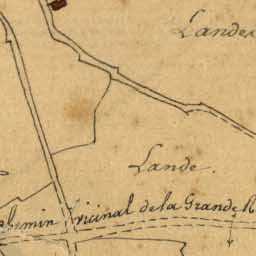 Lande
Lande.
chemin Vicinal de la Grande R